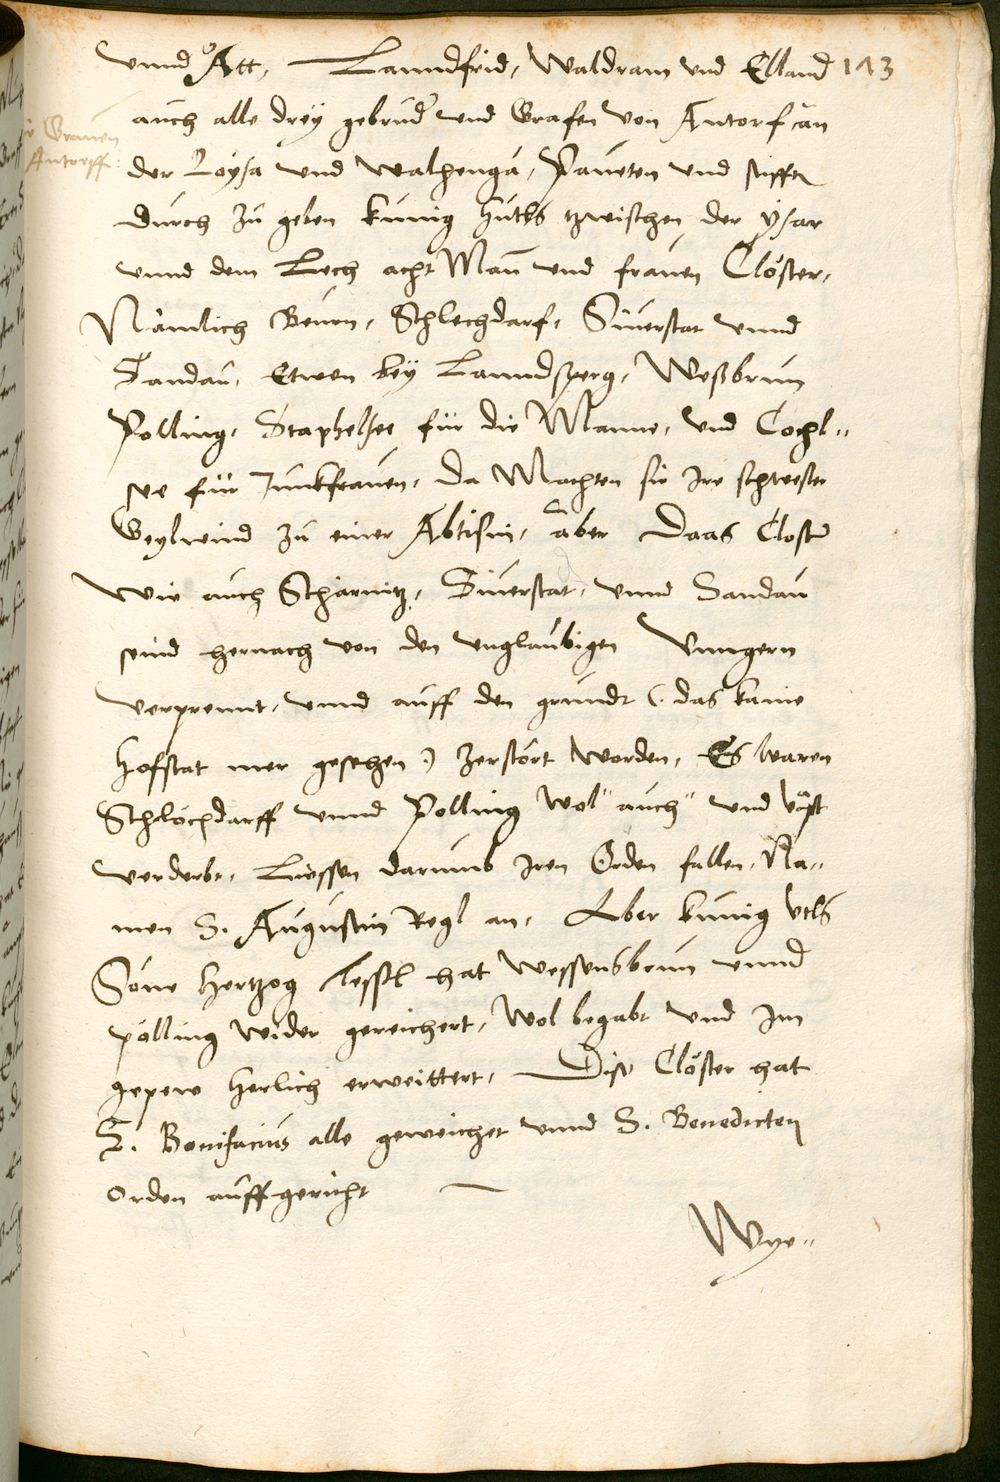 vnnd Att, Lanndfrid, Waldram vnd Elland 143
auch alle drey gebrud' vnd Grafen von Antorf an
Grauen
Antorff:
der Loysa vnd Walhenga, Paueten vnd stifften
durch zu geben kunig Hutls zwischen der ysar
vnnd dem Lech acht Man vnd frauen Clöster,
Nämlich Beurn, Schlechdarf, Siuerstat vnnd
Sandau, etwen bey Lanndsperg, Wesbrun
Polling, Staphelsee für die Manne, vnd Cochl"
see für Junckfrauen, da Machten sie Ire schwester
Geylwind zu einer Abtisin, aber Daas Closter
wie auch Schärnitz, Siuerstat, vnnd Sandau
seind hernach von den vnglaubigen Vnngern
verprennt, vnnd auff den grundt (. das kaine
Hofstat mer gesehen .) zerstört worden, Es waren
Schlöchdarff vnnd Polling wol" auch" vnd väst
verderbt, Liessen darumb Iren Orden fallen, Na"
men S. Augustin Regl an, Aber kunig vtls
Söne Hertzog tessl hat Wessensbrun vnnd
pölling wider gereichert, wol begabt vnd Im
gepew Herlich erweittert, Dise Clöster hat
S. Bonifacius alle geweichet vnnd S. Benedicten
Orden auffgericht
Wye"